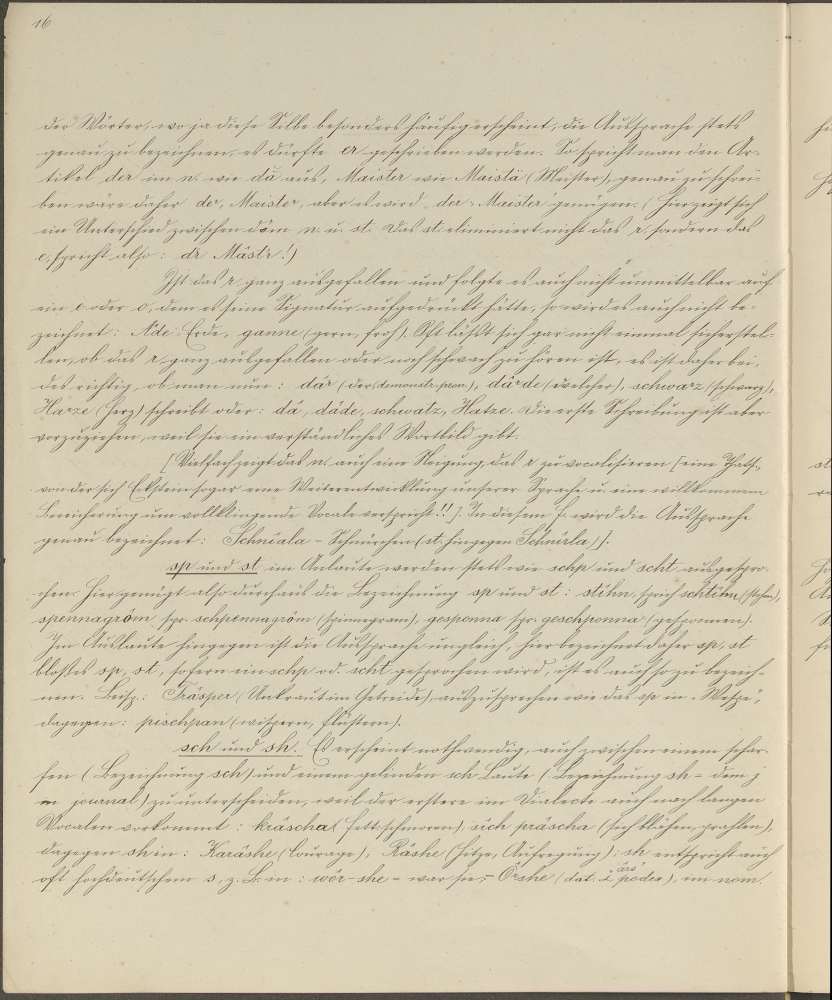 16
der Wörter, wo ja diese Silbe besonders häufig erscheint, die Aussprache stets
genau zu bezeichnen, es dürfte er geschrieben werden. So spricht man den Ar-
tikel der im n. wie dä aus, Maister wie Maistä (Meister), genau zu schrei-
ben wäre daher der, Maister, aber es wird der Maister genügen. (Hier zeigt sich
ein Unterschied zwischen dem n. u. st. Das st. eliminiert nicht das r, sondern das
e, spricht also: dr Mästr!)
Ist das r ganz ausgefallen und folgte es auch nicht unmittelbar auf
ein e oder o, dem es seine Signatur aufgedrückt hätte, so wird es auch nicht be-
zeichnet: Ade Erde, ganne (gern, froh). Oft läßt sich gar nicht einmal sicherstel-
len, ob das r ganz ausgefallen oder noch schwach zu hören ist, es ist daher bei-
des richtig, ob man nun: där (der, demonstr. pron.), därde (welcher), schwarz (schwarz),
Harze (Herz) schreibt oder: dá, däde, schwatz, Hatze. Die erste Schreibung ist aber
vorzuziehen, weil sie ein verständliches Wortbild gibt.
[Vielfach zeigt das n. auch eine Neigung, das r zu vocalisieren [eine Thats.,
von der sich Eckstein sogar eine Weiterentwicklung unserer Sprache u. eine willkommene
Bereicherung um vollklingende Vocale verspricht!!]. In diesem F. wird die Aussprache
genau bezeichnet: Schniala – Schnürchen (st. hingegen Schnürla)].
sp und st im Anlaute werden stets wie schp und scht ausgespro-
chen. Hier genügt also durchaus die Bezeichnung sp und st: stihn, sprich schtihn (stehn),
spennagrom, spr. schpennagrom (Spinngewe), gesponna spr. geschponna (gesponnen).
Im Auslaute hingegen ist die Aussprache ungleich, hier bezeichnet daher sp, st
bloßes sp, st, sofern ein schp od. scht gesprochen wird, ist es auch so zu bezeich-
nen. Beisp.: Träsper (Unkraut im Getreide) auszusprechen wie das sp in „Wespe",
dagegen: pischpan (wispern, flüstern).
sch und sh. Es erscheint nothwendig, auch zwischen einem schar-
fen (Bezeichnung sch) und einem gelinden sch Laute (Bezeichnung sh = dem j
in journal) zu unterscheiden, weil der erstere im Dialecte auch nach langen
Vocalen vorkommt: kräscha (Fett schmoren), sich präscha (sich blähen, prahlen),
dagegen sh in: Karäshe (Courage), Räshe (Hitze, Aufregung); sh entspricht auch
oft hochdeutschem s, z. B. in: wör-she = war sie, – Orshe (dat. z. podex), im nom.